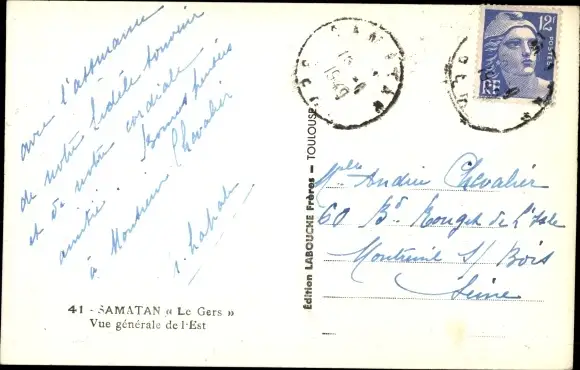 avec l'assurance
de notre fidèle souvenir
et de notre cordiale
amitié. Bonnes pensées
à Monsieur Chevalier
41 - SAMATAN « Le Gers »
Vue générale de l'Est
Édition LABOUCHE Frères — TOULOUSE
SAMATAN
12F
POSTES
RF
Mlle Andrée Chevalier
60 Bd Rouget de L'Isle
Montreuil s/ Bois
Seine